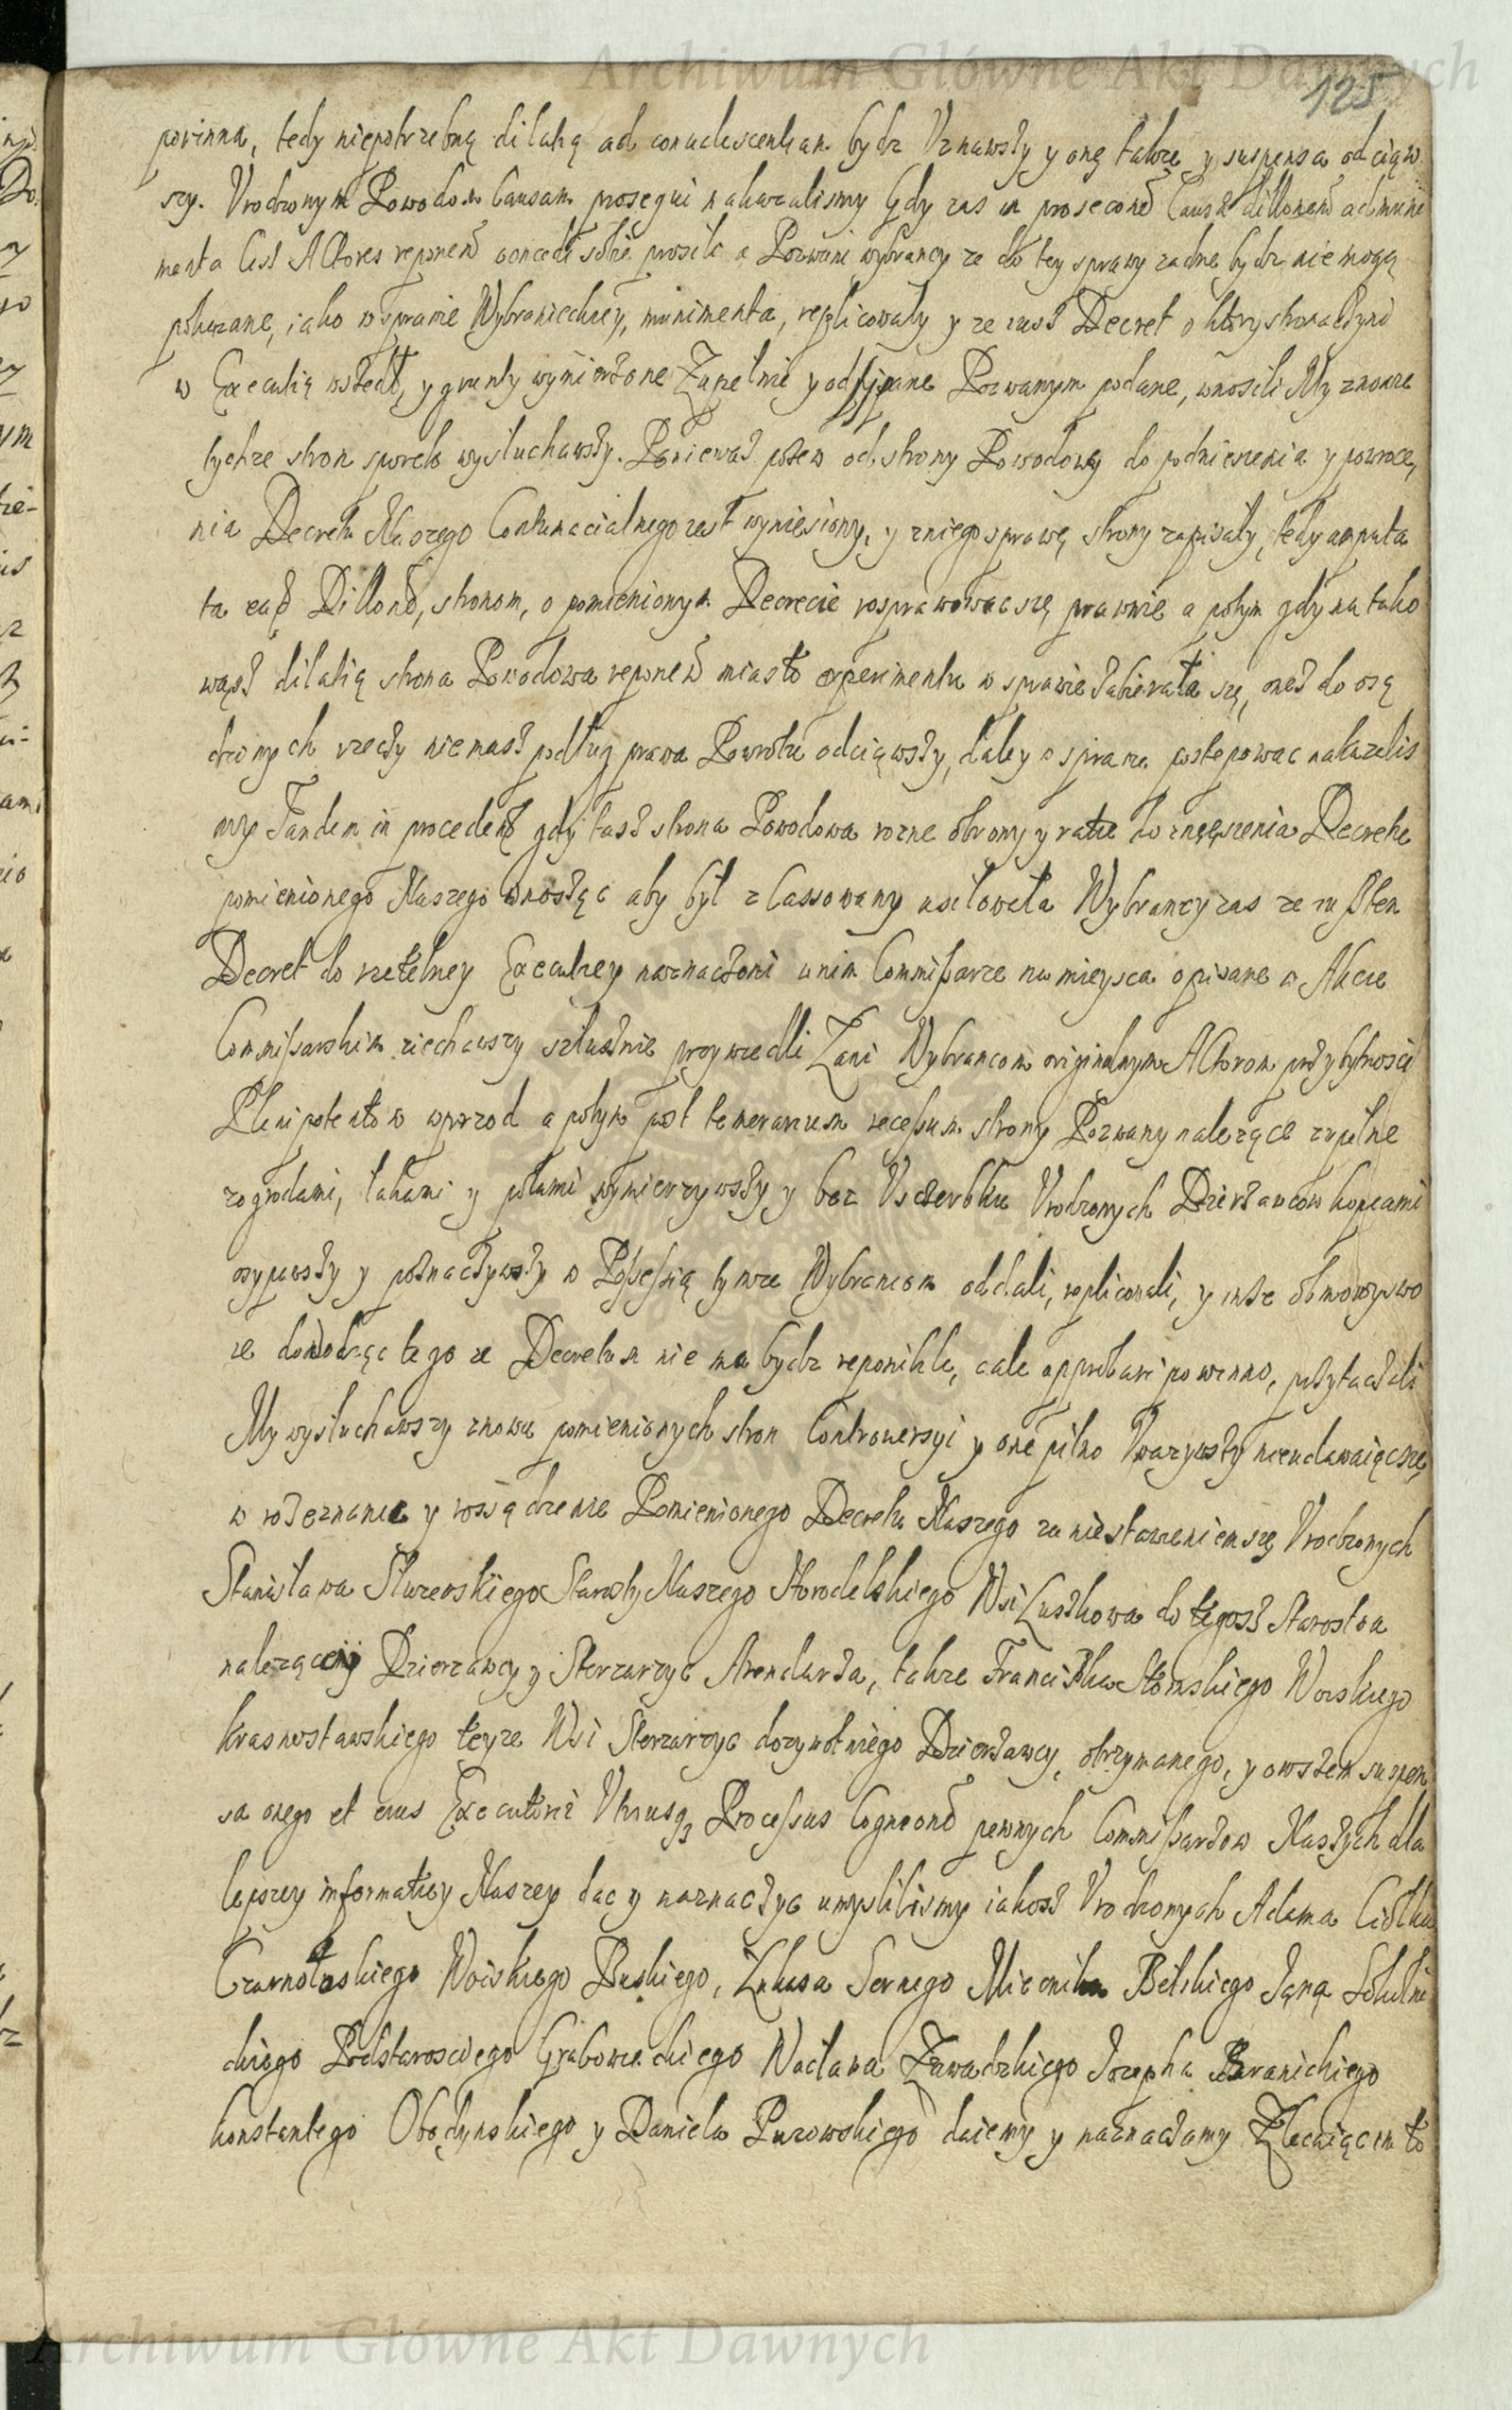 Archiwum Główne Akt Dawnych
125
powinna, tedy niepotrzebną dilatią ad conducescentiam bydz Uznawszy y onę także y suspensa odciąw
szy. Urodzonym Powodom Causam prosequi nakazalismy Gdy zas in proseconē Causæ dillonem ad muni
menta Actores reponend concedi sobie prosili a Pozwani wybrancy ze do tey sprawy zadne bydz nie mogą
pokazane, iako w sprawie Wybranieckiey, munimenta, replicowały y ze iusz Decret o ktory strona czyni
w Executią wszedł, y grunty wymierzone Zupełnie y odsypane Pozwanym podane, wnosili My znowu
tychze stron sporek wysłuchawszy. Poniewasz pozew od strony Powodowey do podniesienia y powroce,
nia Decretu Naszego Contumacialnego iest wyniesiony, y z niego sprawę strony zapisały, tedy amputa
ta eaq Dillonē, stronom, o pomienionym Decrecie rosprawowac się prawnie a potym gdy na tako
wąsz dilatią strona Powodowa reponend miasto experimentu w sprawie zabierała się, onesz do osą
dzonych rzeczy niemasz podług prawa Powrotu odciąwszy, daley w sprawie postępowac nakazalis
my Tandem in procedend gdy tasz strona Powodowa rozne obrony y ratie do zniesienia Decretu
pomienionego Naszego wnosząc aby był zCassowany usiłowała Wybrancy zas ze iusz ten
Decret do rzetelney Executiey naznaczeni w nim Commissarze na mieysca opisane w Akcie
Commissarskim ziechawszy słusznie przywiedli Łani Wybrancom originalnym Actorom przy bytnosci
Plenipotentow wprzod a potym post temerarium recessum strony Pozwany nalezące zupełne
zogrodami, łąkami y polami wymierzywszy y bez Uszczerbku Urodzonych Dzierzawcow kopcami
osypawszy y poznaczywszy w Possessią tymze Wybrancom oddali, replicowali, y insze obmowy swo
ie dowodząc tego ze Decretum nie ma bydz reponibile, cale approbari powinno, przytaczali
My wysłuchawszy znowu pomienionych stron Controwersyi y one pilno Uwazywszy nieudawaiąc się
w rozeznanie y rossądzenie Pomienionego Decretu Naszego za niestawieniem się Urodzonych
Stanisława Służewskiego Starosty Naszego Horodelskiego Wsi Łuszkowa do tegosz Starostwa
nalezącey Dzierzawcy y Sterzarzyc Arendarza, takze Franciszka Słomskiego Woiskiego
Krasnostawskiego teyze Wsi Sterzarzyc dozywotniego Dzierzawcy, otrzymanego, y owszem suspen
sa onego et eius Executionē Utriusq3 Processus Cogneonē pewnych Commissarzow Naszych dla
lepszey informatiey Naszey dac y naznaczyc umyslilismy iakosz Urodzonych Adama Ciołka
Czarnołuskiego Woiskiego Buskiego, Łukasa Sernego Miecznika Bełskiego Jana Sokolni
ckiego Podstarosciego Grabowieckiego Wacława Zawadzkiego Jozepha Baranickiego
Konstantego Obodynskiego y Daniela Puzowskiego daiemy y naznaczamy Zlecaiąc im to
Archiwum Główne Akt Dawnych